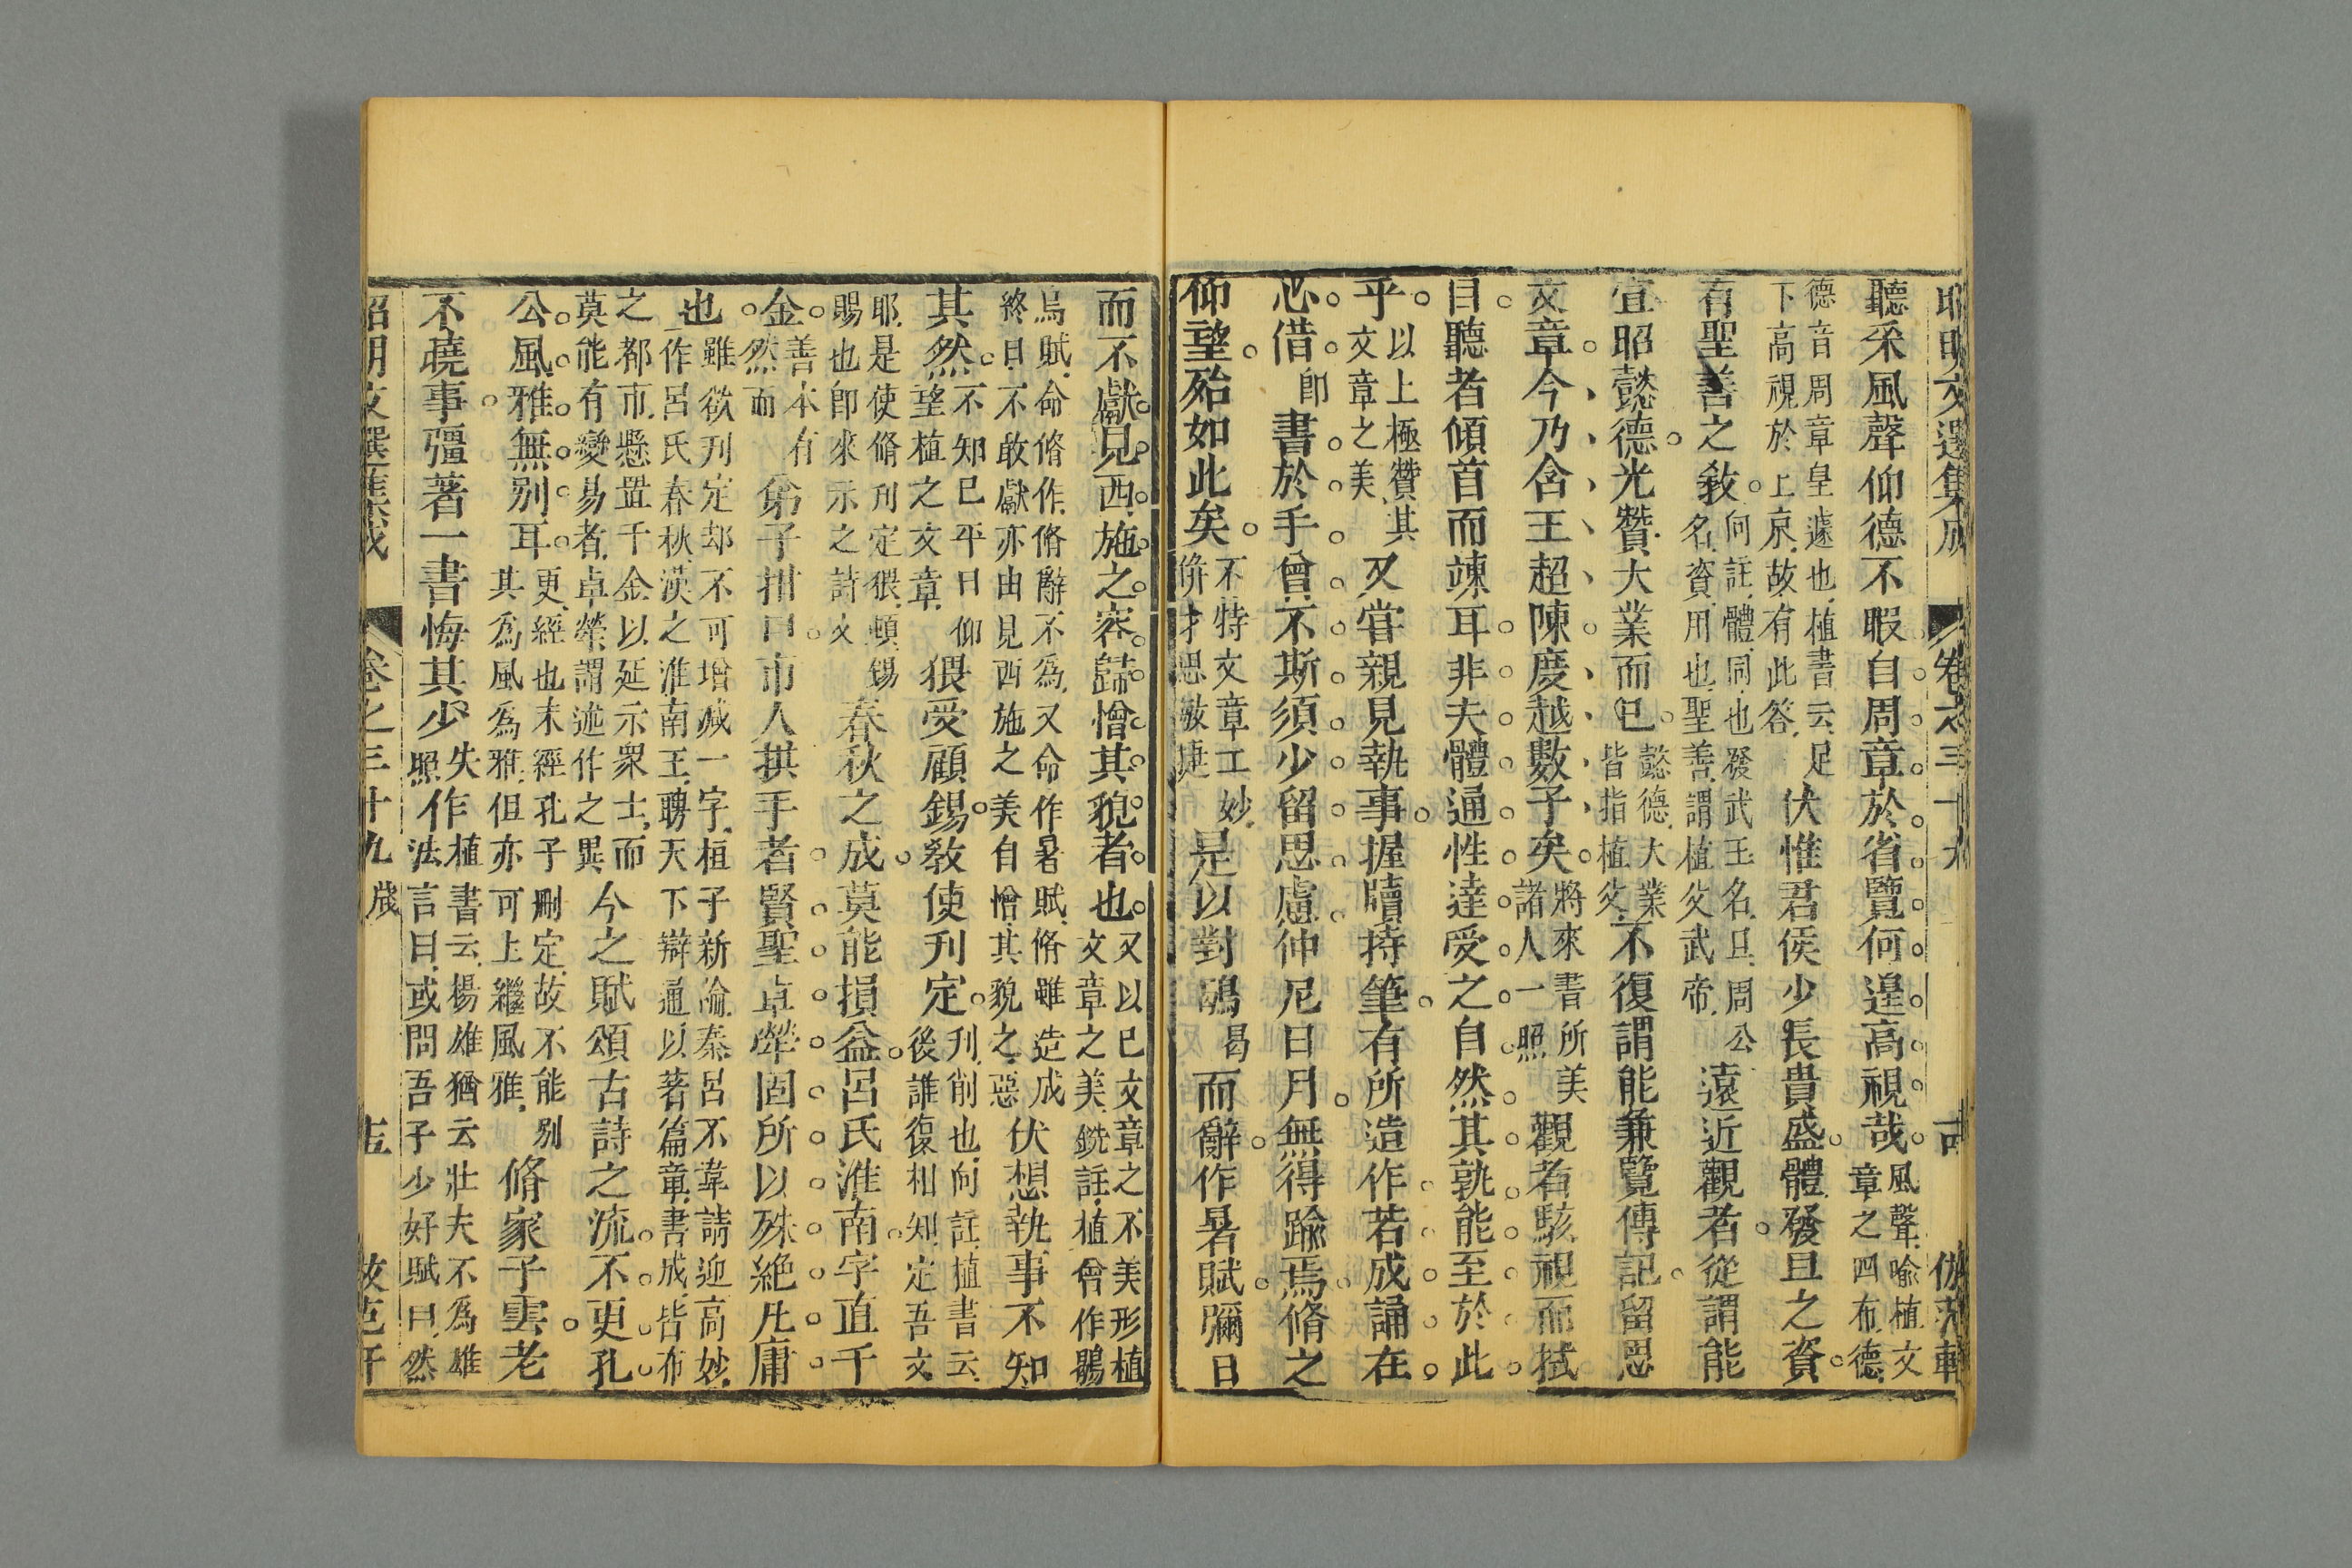 昭明文選集成 卷之三十九
聽采風聲仰德不暇自周章於省覽何遑高視哉風聲喻植文章之四布德
德音周章皇遽也植書云足下高視於上京故有此答伏惟君侯少長貴盛體發旦之資
有聖善之敎向註體同也發武王名旦周公名資用也聖善謂植父武帝遠近觀者從謂能
宣昭懿德光贊大業而已懿德大業皆指植父不復謂能兼覽傳記留思
文章今乃含王超陳度越數子矣將來書所美諸人一照觀者駭視而拭
目聽者傾首而竦耳非夫體通性達受之自然其孰能至於此
乎以上極贊其文章之美又嘗親見執事握牘持筆有所造作若成誦在
心借卽書於手曾不斯須少留思慮仲尼日月無得踰焉脩之
仰望殆如此矣不特文章工妙倂才思敏捷是以對鶡曷而辭作暑賦彌日
而不獻見西施之容歸憎其貌者也又以已文章之不美形植文章之美銑註植曾作鶡
鳥賦命脩作脩辭不為又命作暑賦脩雖造成終日不敢獻亦由見西施之美自憎其貌之惡伏想執事不知
其然不知已平日仰望植之文章猥受顧錫敎使刋定刋削也向註植書云後誰復相知定吾文
耶是使脩刋定猥頓錫賜也卽來示之詩文春秋之成莫能損益呂氏淮南字直千
金善本有然而弟子拑口市人拱手者賢聖卓犖固所以殊絶凡庸
也雖欲刋定却不可增減一字桓子新論秦呂不韋請迎高妙作呂氏春秋漢之淮南王聘天下辯通以著篇章書成皆布
之都市懸置千金以延示眾士而莫能有變易者卓犖謂述作之異今之賦頌古詩之流不更孔
公風雅無別耳更經也未經孔子刪定故不能別其為風為雅但亦可上繼風雅脩家子雲老
不曉事彊著一書悔其少失照作植書云楊雄猶云壯夫不為雄法言曰或問吾子少好賦曰然
昭明文選集成 卷之三十九 牋